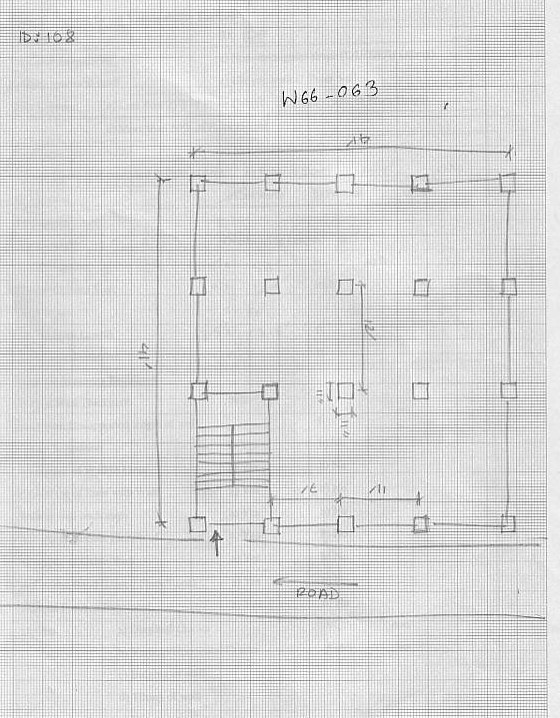 ID: 108
W66-063
41'
41'
12'
11"
11"
11'
ROAD